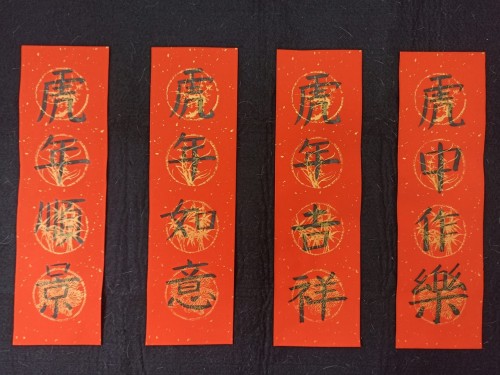 虎年順景
虎年如意
虎年吉祥
虎中作樂